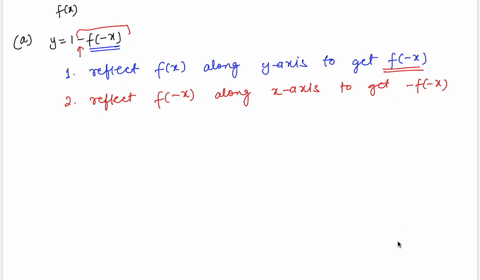 f(x)
(a) y = 1 - f(-x)
1. reflect f(x) along y-axis to get f(-x)
2. reflect f(-x) along x-axis to get -f(-x)